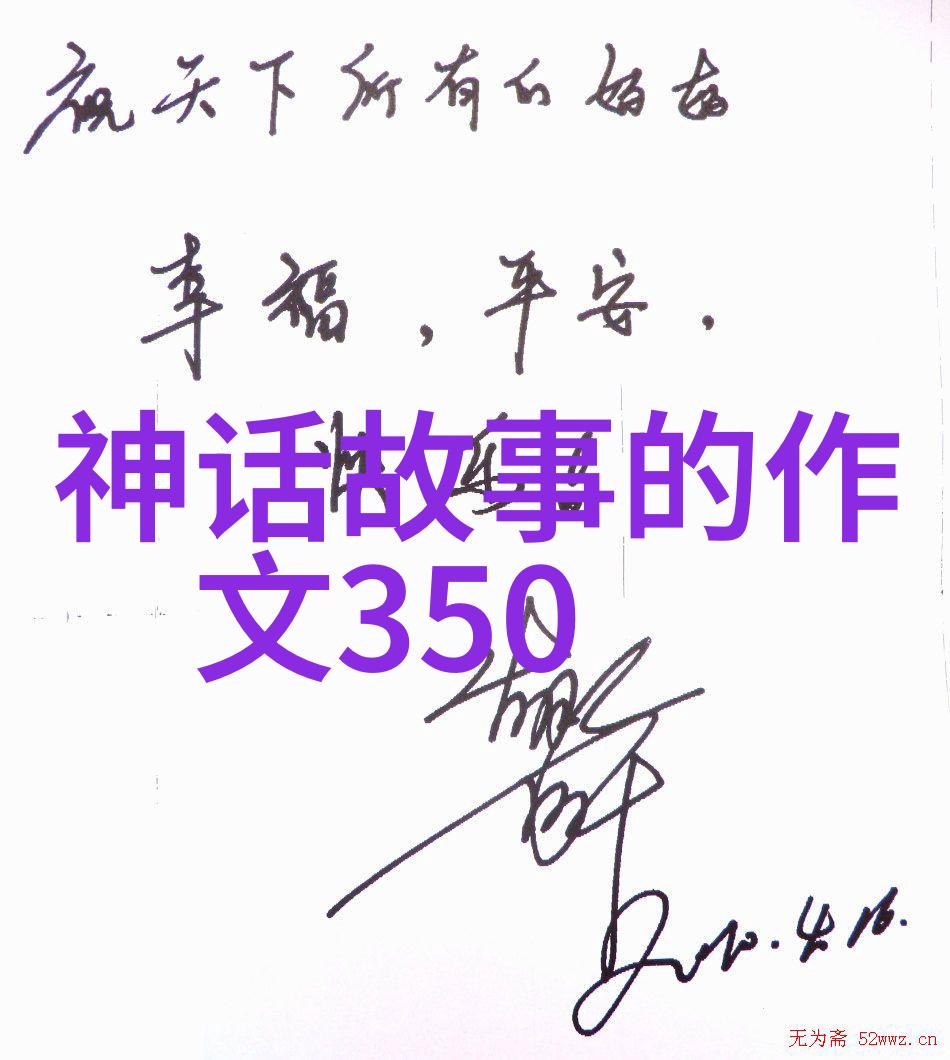 祝天下所有的妈妈
幸福，平安，
神话故事的作
文350
2010.4.16.
无为斋 52wwz.cn